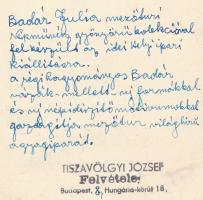 Badár Júlia mezőtúri
népművész gyönyörű kollekcióval
fel készült az idei helyi ipari
kiállításra.
a régi hagyományos Badár
vázák mellett új formákkal
és új népi díszítő motívumokkal
gazdagítja mezőtúr világhírű
agyagiparát.
TISZAVÖLGYI JÓZSEF
Felvétele,
Budapest, 8, Hungária-körút 18,